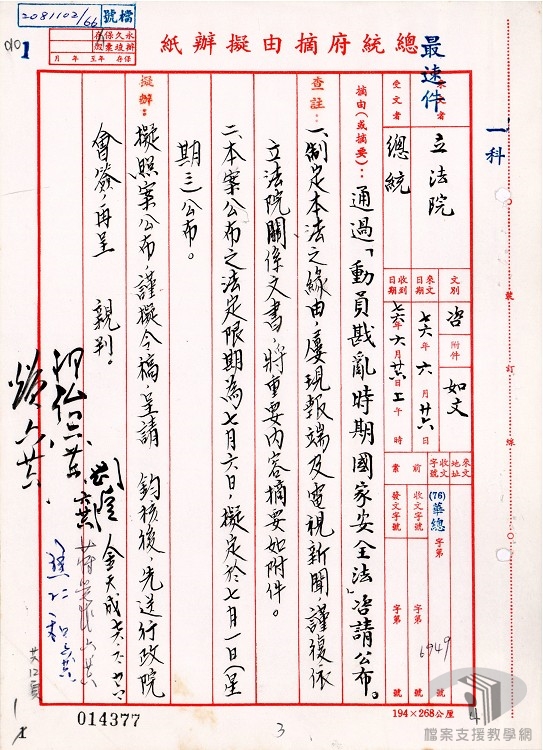 檔號
2081102/66
保存
永久
001
1
年 月 至 年 月 保存
總統府摘由擬辦紙
最速件
一科
來文者 立法院
受文者 總統
文別 咨
附件 如文
來文日期 七六年六月廿六日
收到日期 七六年六月廿六日上午 時
來文字號
收文地址
前案
(76)華總 字第
收文字號 字第 6949 號
發文字號 字第 號
摘由(或摘要):通過「動員戡亂時期國家安全法」咨請公布。
查註:一、制定本法之緣由,屢現報端及電視新聞,謹復依
立法院關係文書,將重要內容摘要如附件。
二、本案公布之法定限期為七月六日,擬定於七月一日(星
期三)公布。
擬辦:擬照案公布,謹擬令稿,呈請 鈞核後,先送行政院
會簽,再呈 親判。
金天成
共12頁
裝
訂
線
014377
3
194×268公厘
4
檔案支援教學網